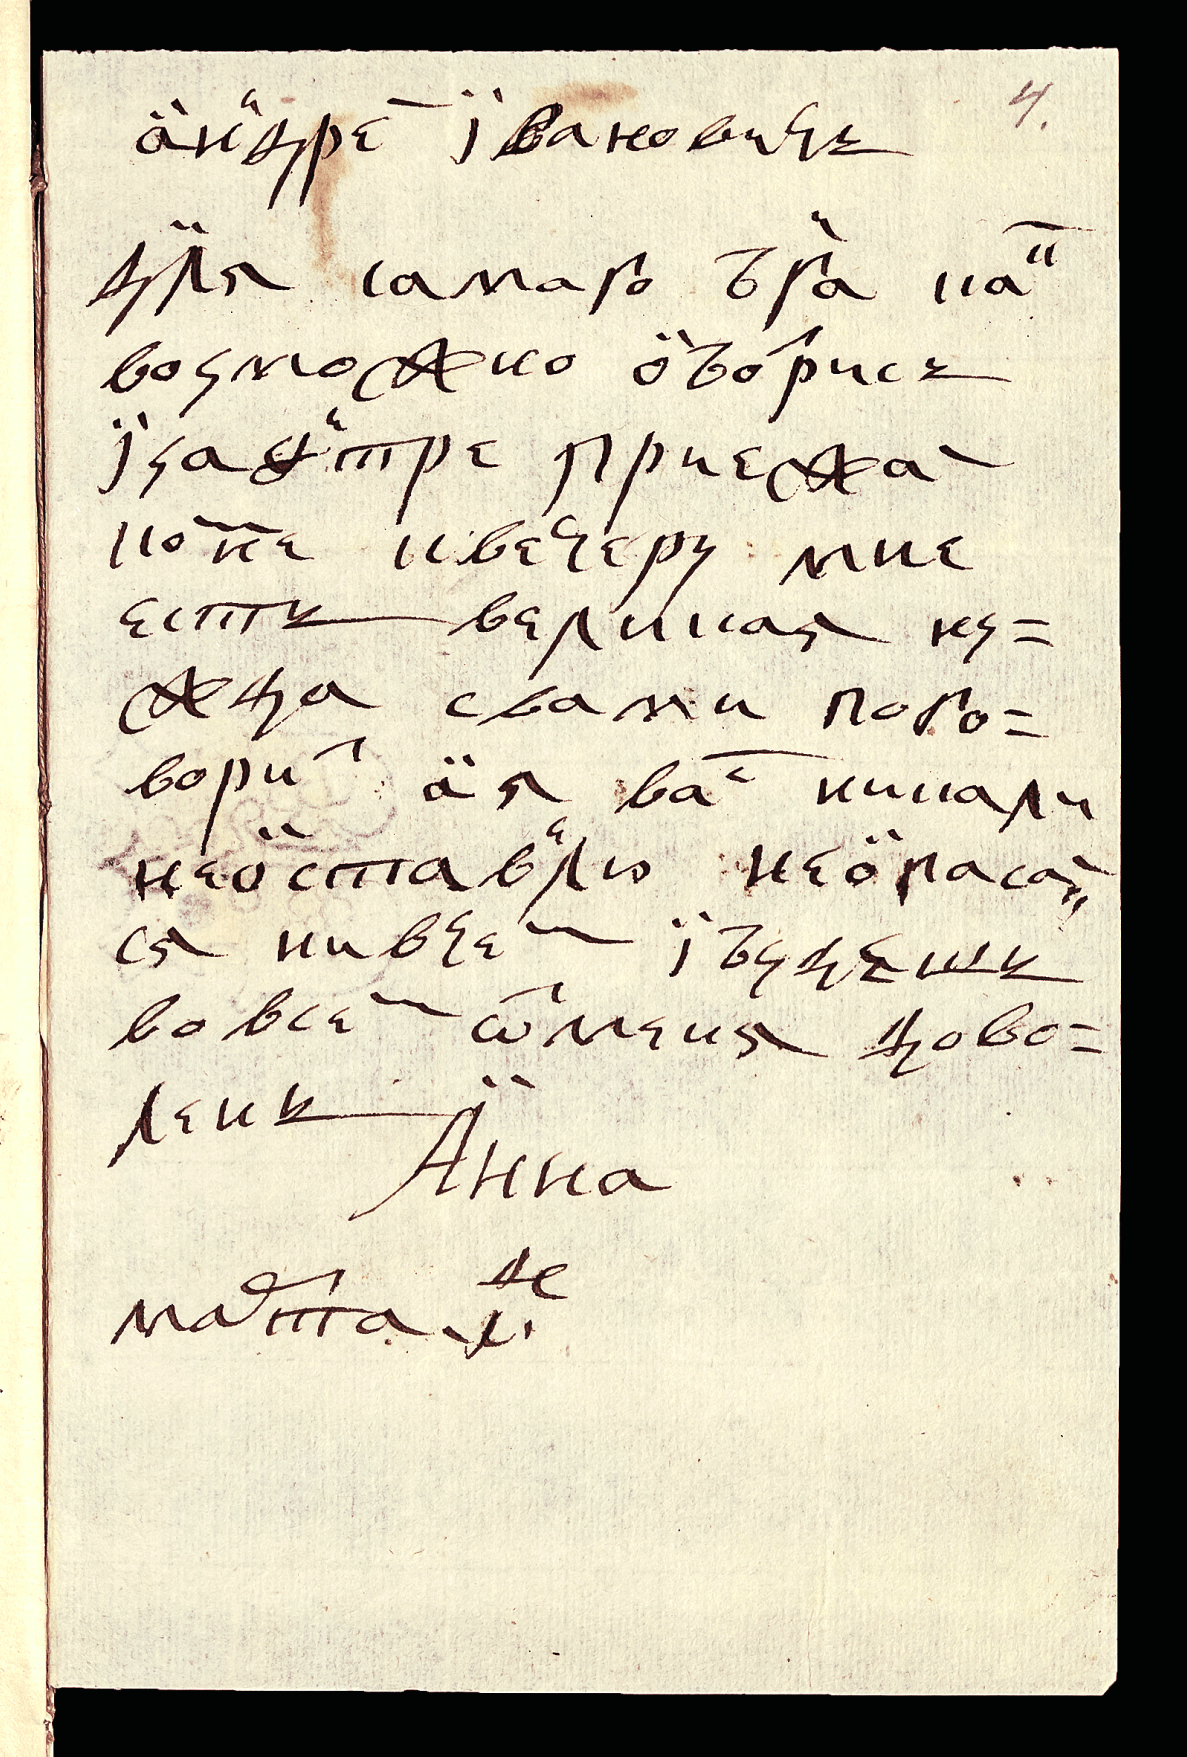 андреи івановичь
4.
для самаго бга как
возможно ободрись
і завтре приежаи
комне квечеру мне
есть великая ну=
жда свами пого=
ворит а я вас никали
неоставлю неопасаи
ся нивчем і будешь
вовсем ѿменя дово=
лень
Анна
марта